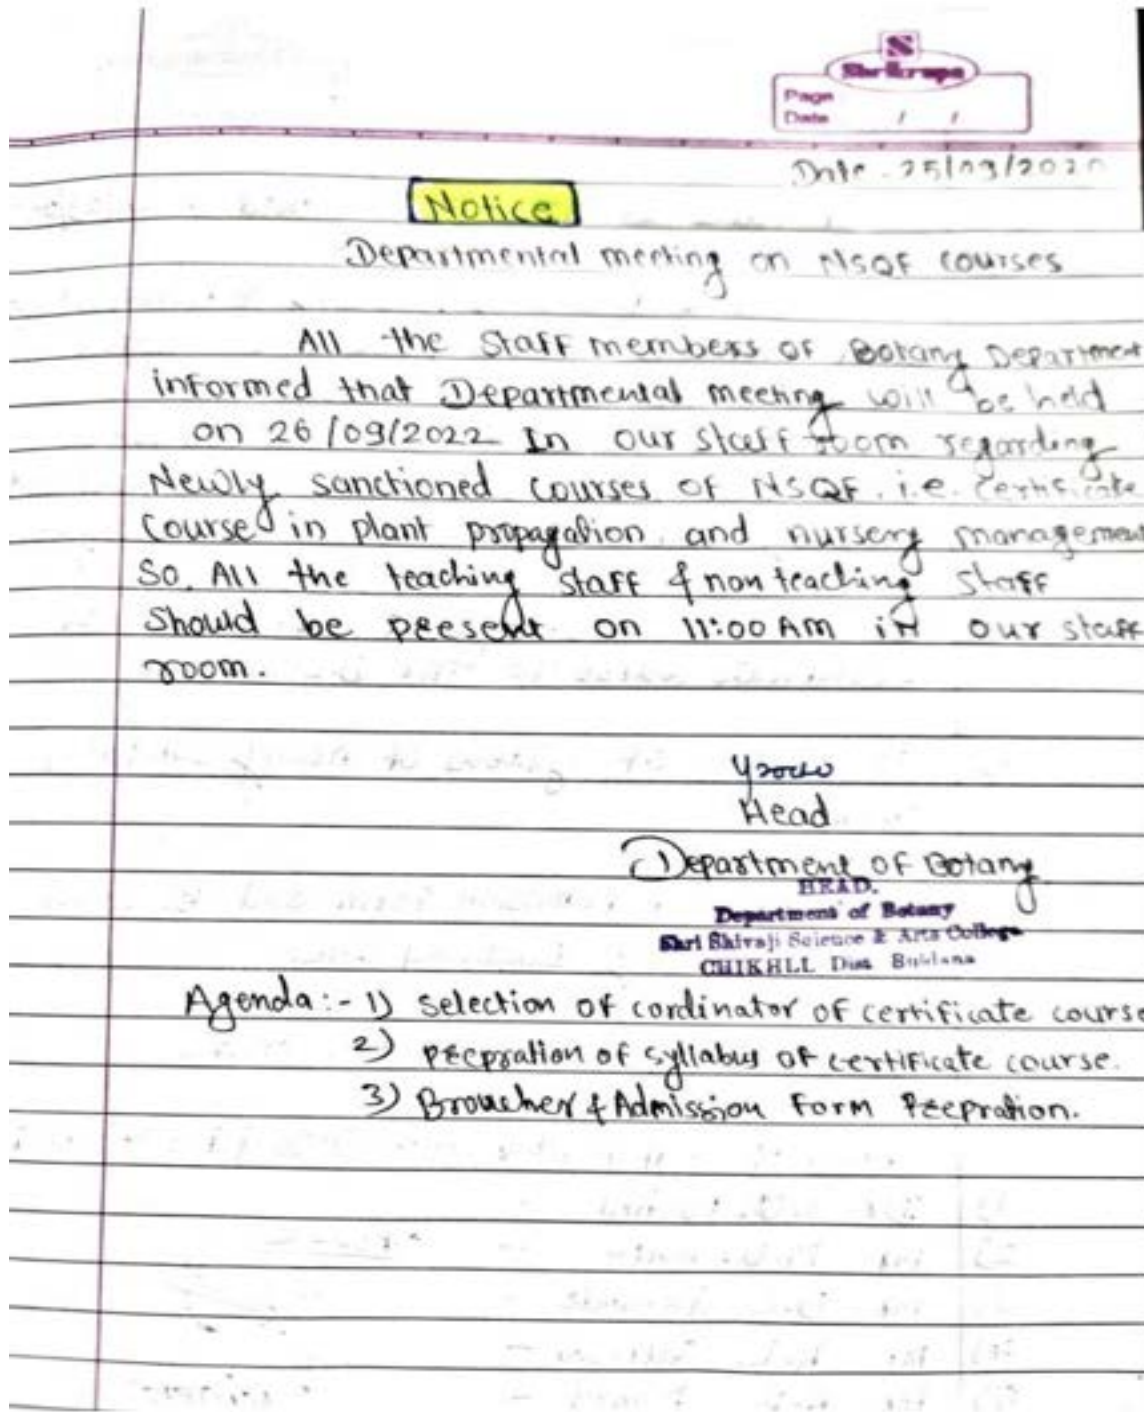 S
Shrikrupa
Page
Date / /
Date. 25/09/202
Notice
Departmental meeting on NSQF courses
All the staff members of Botany Department
informed that Departmental meeting will be held
on 26/09/2022 In our staff room regarding
Newly sanctioned courses of NSQF. i.e. Certificate
course in plant propagation and nursery management
So. All the teaching staff & non teaching staff
should be present on 11:00 AM in our staff
room.
Head
Department of Botany
HEAD.
Department of Botany
Shri Shivaji Science & Arts College
CHIKHLI, Dist. Buldana
Agenda:- 1) selection of cordinator of certificate course
2) prepration of syllabus of certificate course.
3) Broucher & Admission Form Prepration.